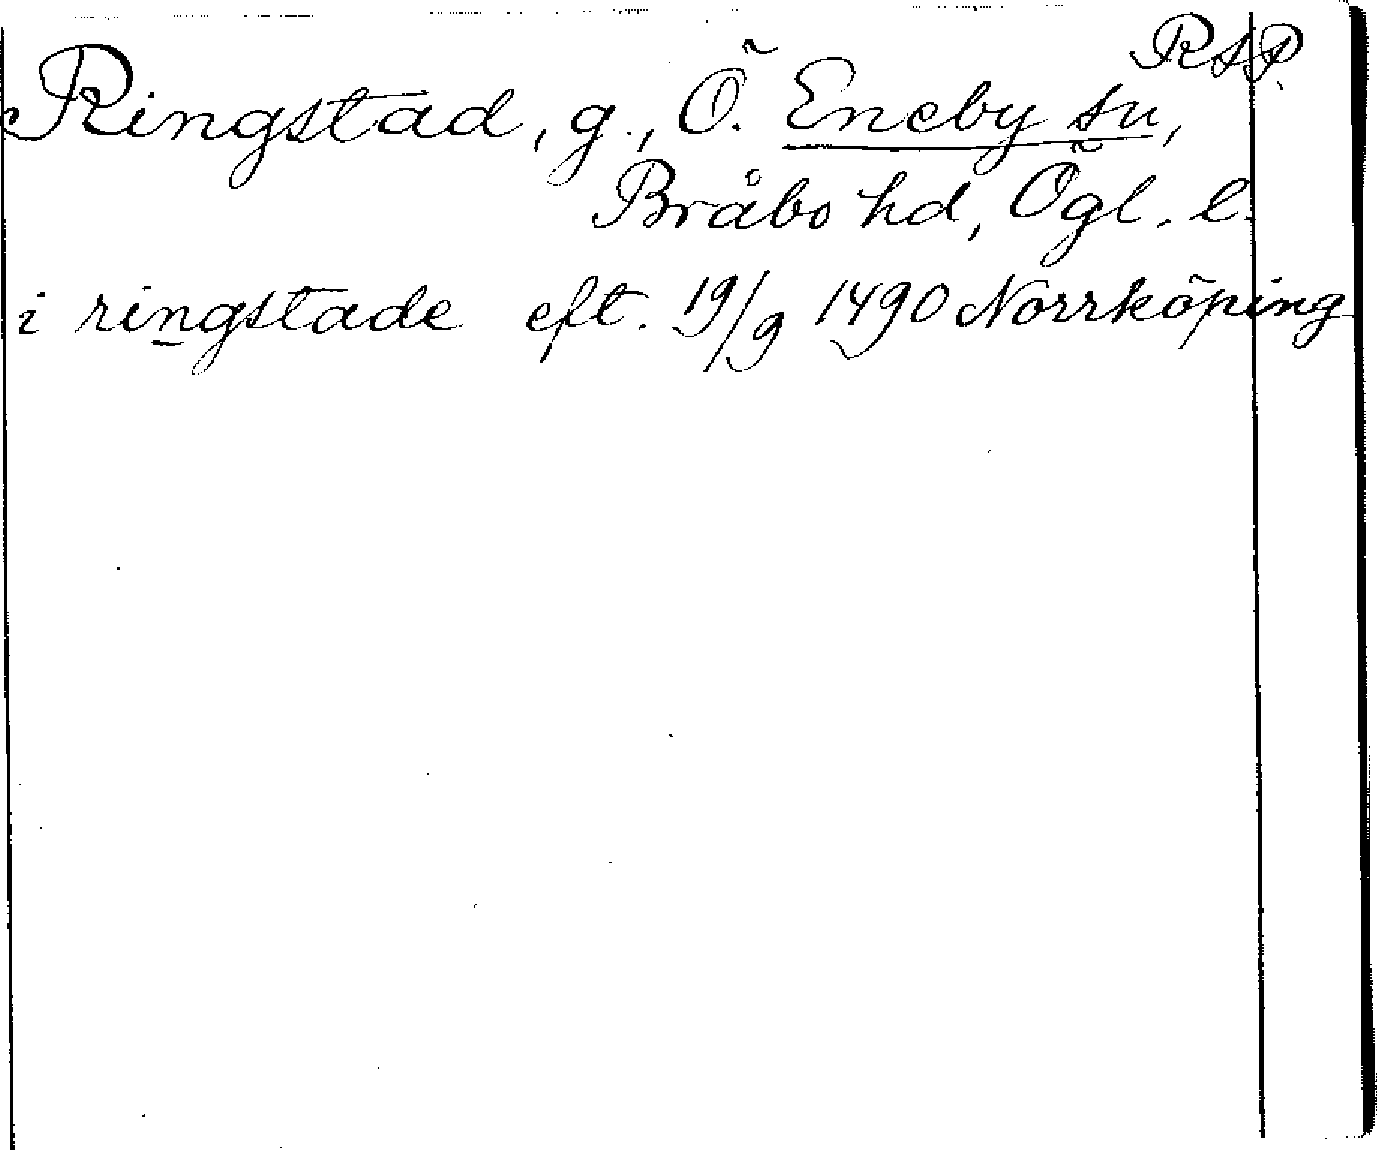 RAP.
Ringstad, g., Ö. Eneby sn,
Bråbo hd, Ögl. l.
i ringstade eft. 19/9 1490 Norrköping